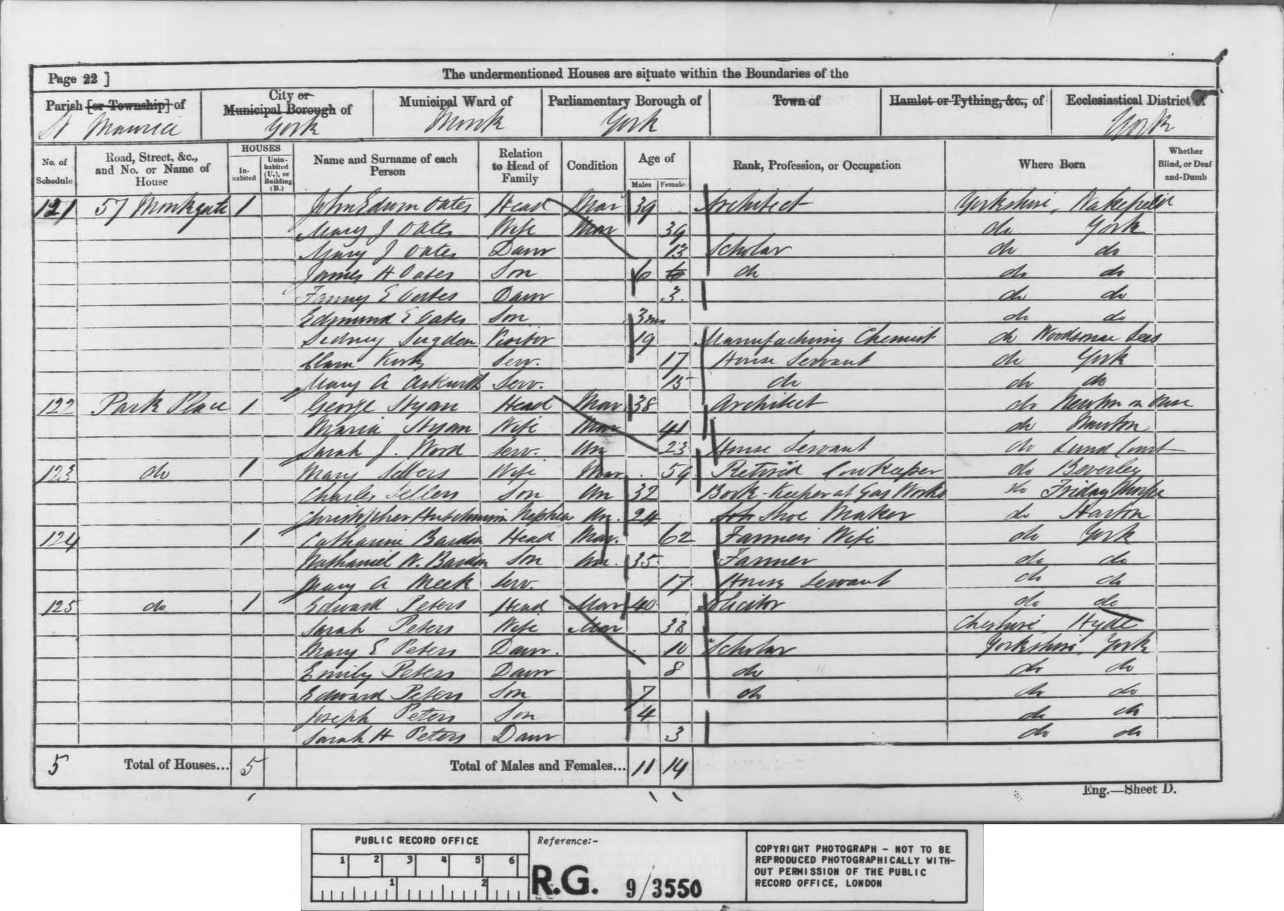 Page 22 ]
The undermentioned Houses are situate within the Boundaries of the
Parish [or Township] of
City or Municipal Borough of
Municipal Ward of
Parliamentary Borough of
Town of
Hamlet or Tything, &c., of
Ecclesiastical District of
St Maurice York Monk York York
No. of Schedule
Road, Street, &c., and No. or Name of House
HOUSES
Inhabited
Uninhabited (U.), or Building (B.)
Name and Surname of each Person
Relation to Head of Family
Condition
Age of
Males
Females
Rank, Profession, or Occupation
Where Born
Whether Blind, or Deaf and-Dumb
121 57 Monkgate 1 John Edwin Oates Head Mar 39 Architect Yorkshire, Wakefield
Mary J Oates Wife Mar 39 do York
Mary J Oates Daur 13 Scholar do do
James H Oates Son 6 do do do
Fanny E Oates Daur 3 do do
Edmund E Oates Son 3 mo do do
Sidney Sugden Visitor 19 Manufacturing Chemist do
Kirk Serv. 17 House Servant do York
Mary A Serv. 15 do do do
122 Park Place 1 George Styan Head Mar 38 Architect do Newton on Ouse
Maria Styan Wife Mar 41 do
Sarah J. Wood Serv. Un 23 House Servant do
123 do 1 Mary Sellers Wife Mar 59 Retired Cowkeeper do Beverley
Charles Sellers Son Un 32 Book-Keeper at Gas Works do Friday
Christopher Hutchinson Nephew Un. 24 Shoe Maker do Harton
124 1 Catharine Bardon Head Mar. 62 Farmers Wife do York
Nathaniel W. Bardon Son Un. 35 Farmer do do
Mary A Meek Serv. 17 House Servant do do
125 do 1 Edward Peters Head Mar 40 Solicitor do do
Sarah Peters Wife Mar 38 Cheshire Hyde
Mary E Peters Daur. 10 Scholar Yorkshire, York
Emily Peters Daur 8 do do do
Edward Peters Son 7 do do do
Joseph Peters Son 4 do do
Sarah H Peters Daur 3 do do
5 Total of Houses... 5 Total of Males and Females... 11 14
Eng.—Sheet D.
PUBLIC RECORD OFFICE
1 2 3 4 5 6
1 2
Reference:-
R.G. 9/3550
COPYRIGHT PHOTOGRAPH - NOT TO BE
REPRODUCED PHOTOGRAPHICALLY WITH-
OUT PERMISSION OF THE PUBLIC
RECORD OFFICE, LONDON